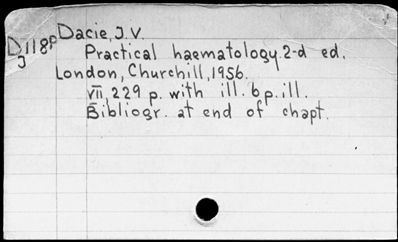 Dacie, J.V.
D118p
J
Practical haematology. 2-d ed.
London, Churchill, 1956.
VII, 229 p. with ill. 6 p. ill.
Bibliogr. at end of chapt.